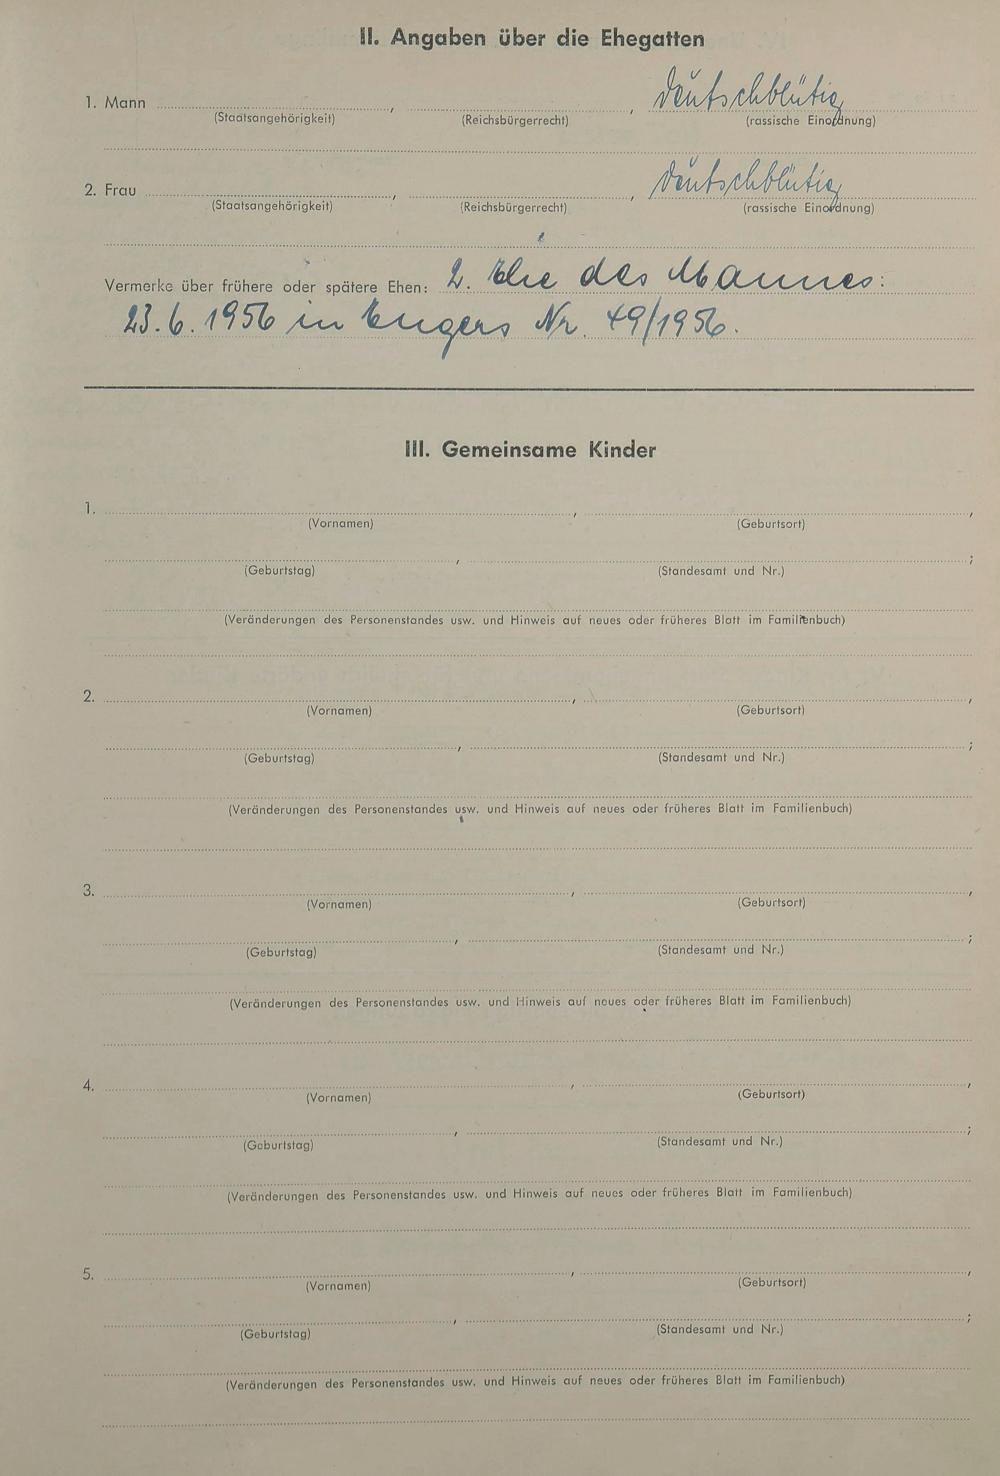 II. Angaben über die Ehegatten
1. Mann , , deutschblütig
(Staatsangehörigkeit) (Reichsbürgerrecht) (rassische Einordnung)
2. Frau , , deutschblütig
(Staatsangehörigkeit) (Reichsbürgerrecht) (rassische Einordnung)
Vermerke über frühere oder spätere Ehen: 2. Ehe des Mannes:
23.6.1956 in Engers Nr. 49/1956.
III. Gemeinsame Kinder
1. , ,
(Vornamen) (Geburtsort)
, ;
(Geburtstag) (Standesamt und Nr.)
(Veränderungen des Personenstandes usw. und Hinweis auf neues oder früheres Blatt im Familienbuch)
2. , ,
(Vornamen) (Geburtsort)
, ;
(Geburtstag) (Standesamt und Nr.)
(Veränderungen des Personenstandes usw. und Hinweis auf neues oder früheres Blatt im Familienbuch)
3. , ,
(Vornamen) (Geburtsort)
, ;
(Geburtstag) (Standesamt und Nr.)
(Veränderungen des Personenstandes usw. und Hinweis auf neues oder früheres Blatt im Familienbuch)
4. , ,
(Vornamen) (Geburtsort)
, ;
(Geburtstag) (Standesamt und Nr.)
(Veränderungen des Personenstandes usw. und Hinweis auf neues oder früheres Blatt im Familienbuch)
5. , ,
(Vornamen) (Geburtsort)
, ;
(Geburtstag) (Standesamt und Nr.)
(Veränderungen des Personenstandes usw. und Hinweis auf neues oder früheres Blatt im Familienbuch)